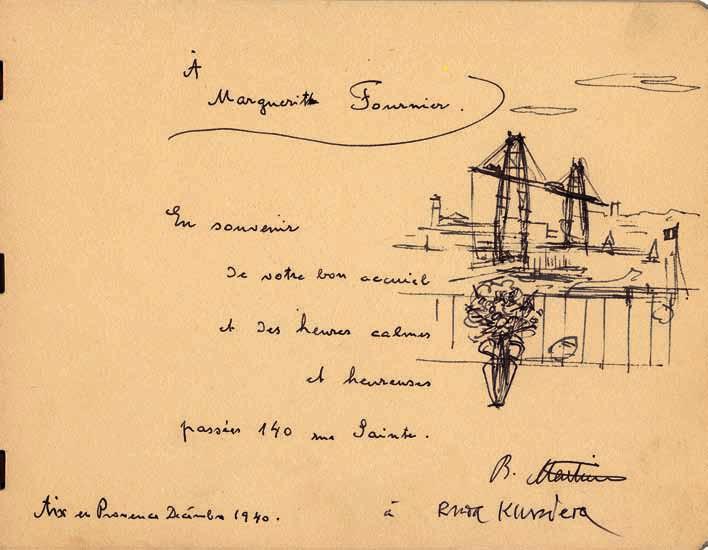 À
Marguerite Fournier.
En souvenir
de votre bon accueil
et des heures calmes
et heureuses
passées 140 rue Sainte.
B. Martin
Aix en Provence Décembre 1940. à